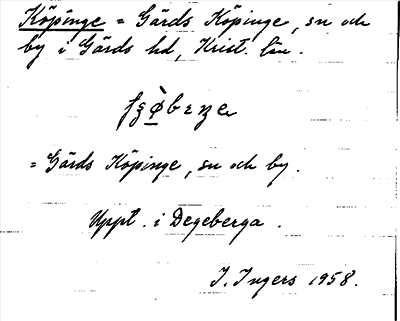 Köpinge = Gärds Köpinge, sn och
by i Gärds hd, Krist. län.
= Gärds Köpinge, sn och by.
Uppt. i Degeberga.
I. Ingers 1958.